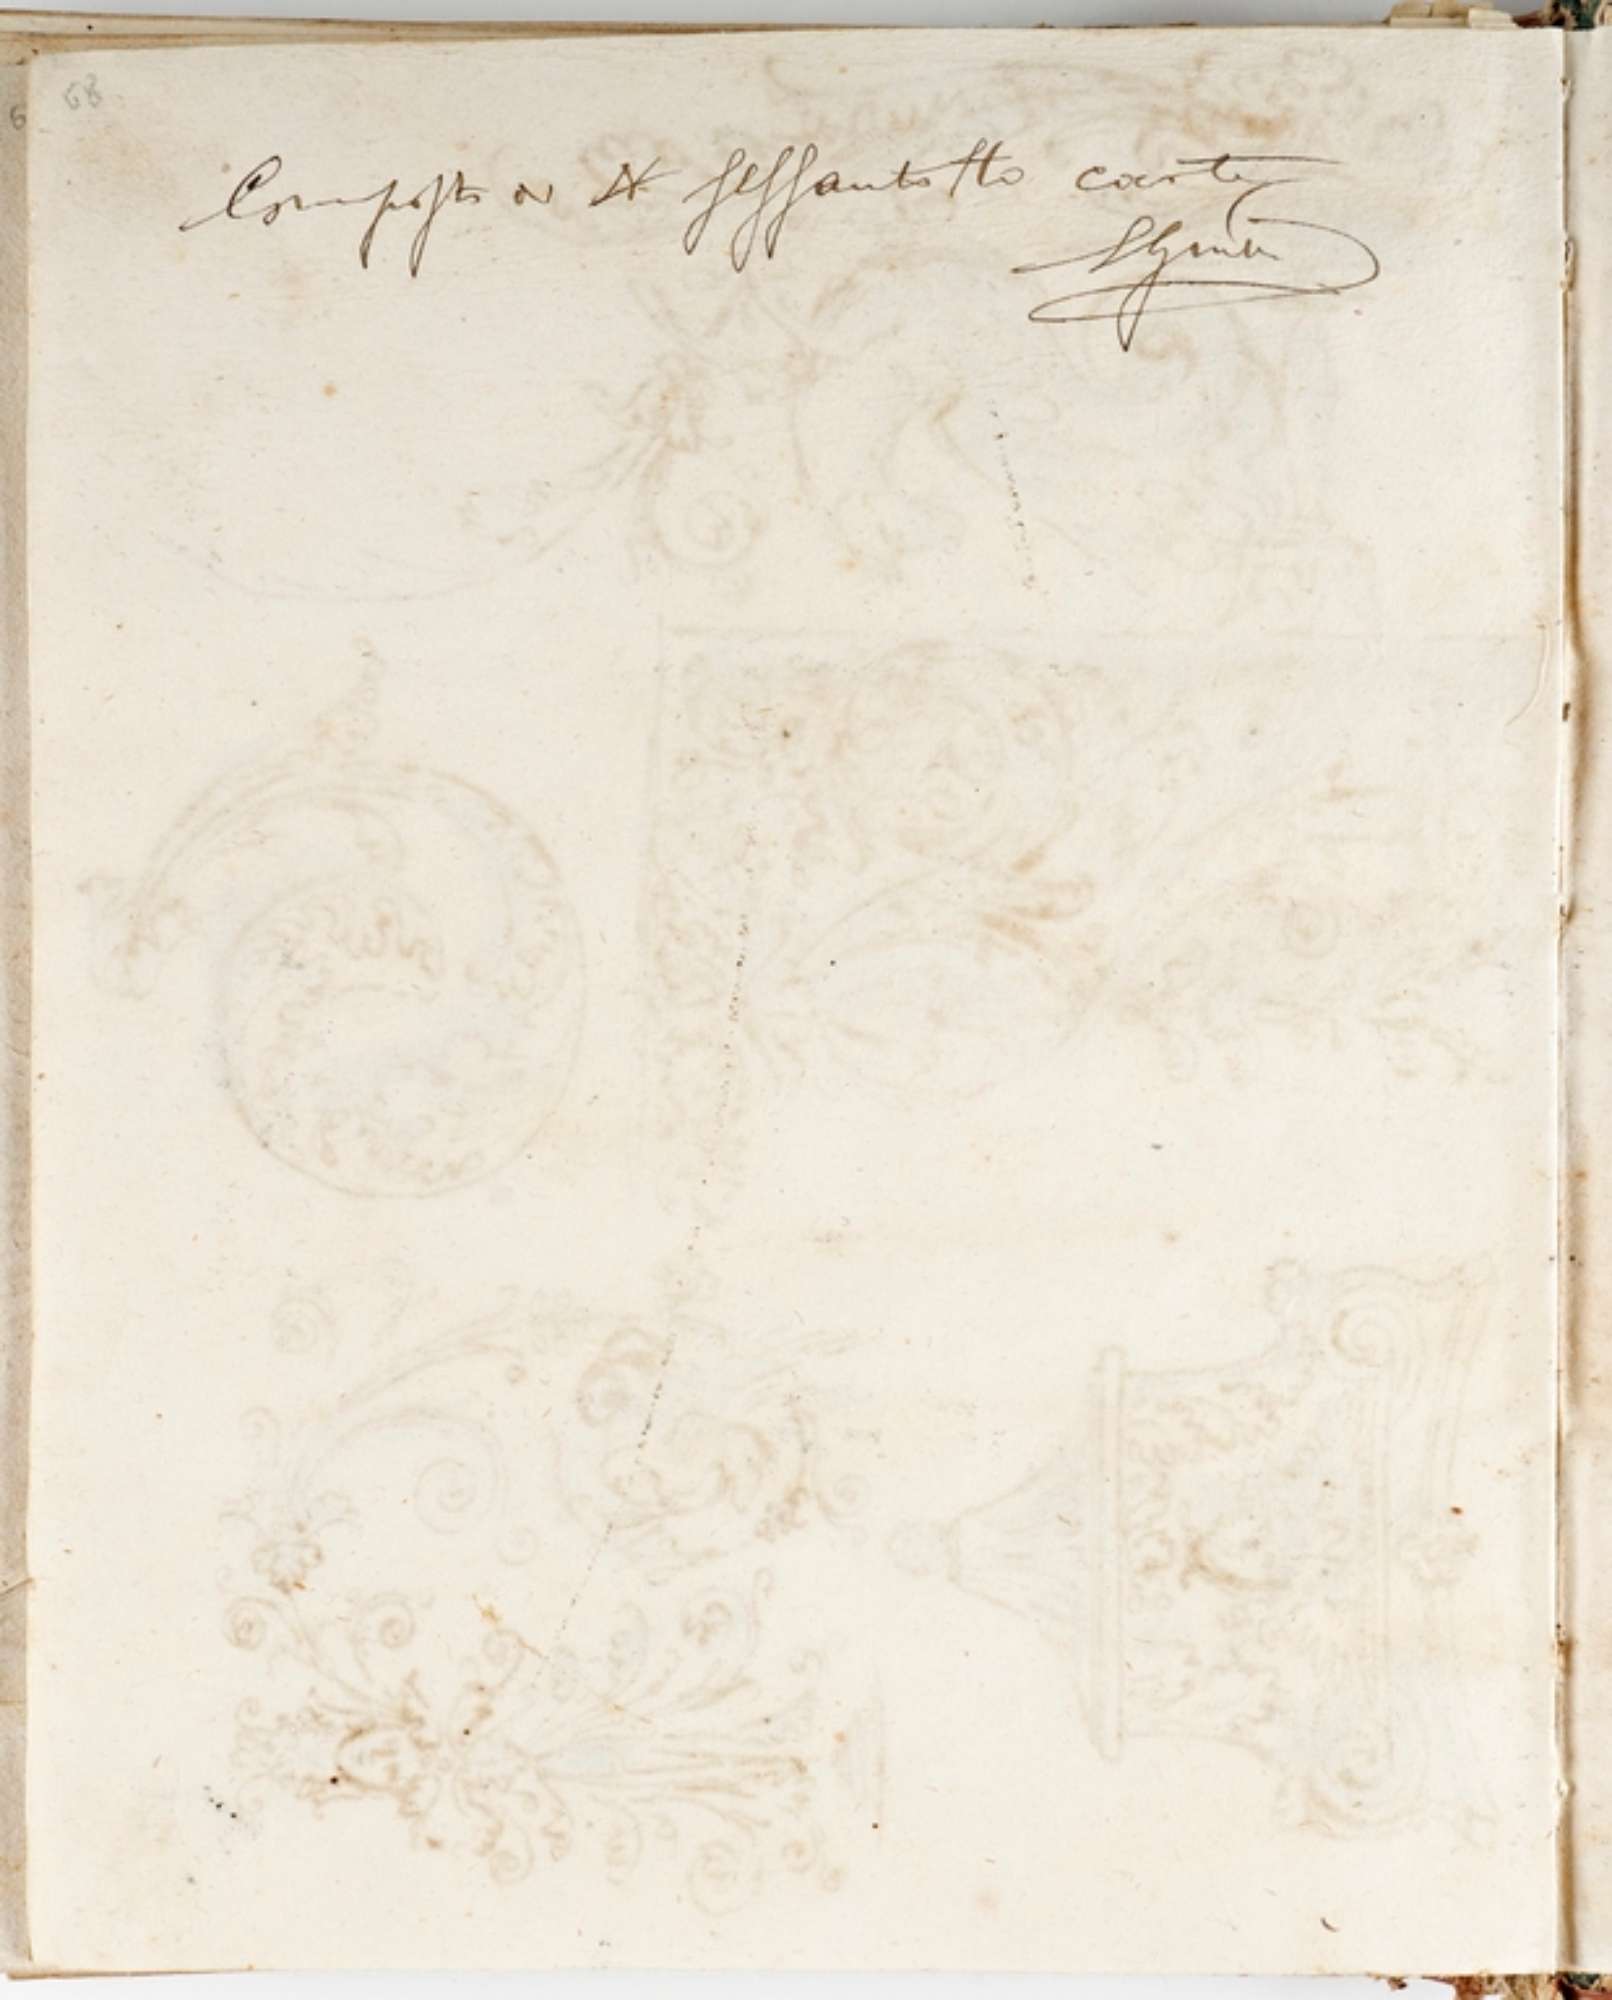 68
Composto di N° sessantotto carte